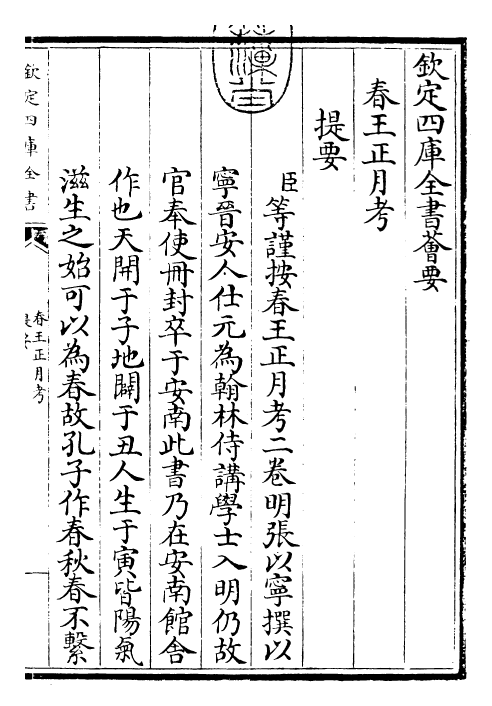 欽定四庫全書薈要
春王正月考
提要
臣等謹按春王正月考二卷明張以寧撰以
寧晉安人仕元為翰林侍講學士入明仍故
官奉使冊封卒于安南此書乃在安南館舍
作也天開于子地闢于丑人生于寅皆陽氣
滋生之始可以為春故孔子作春秋春不繫
欽定四庫全書
春王正月考
提要